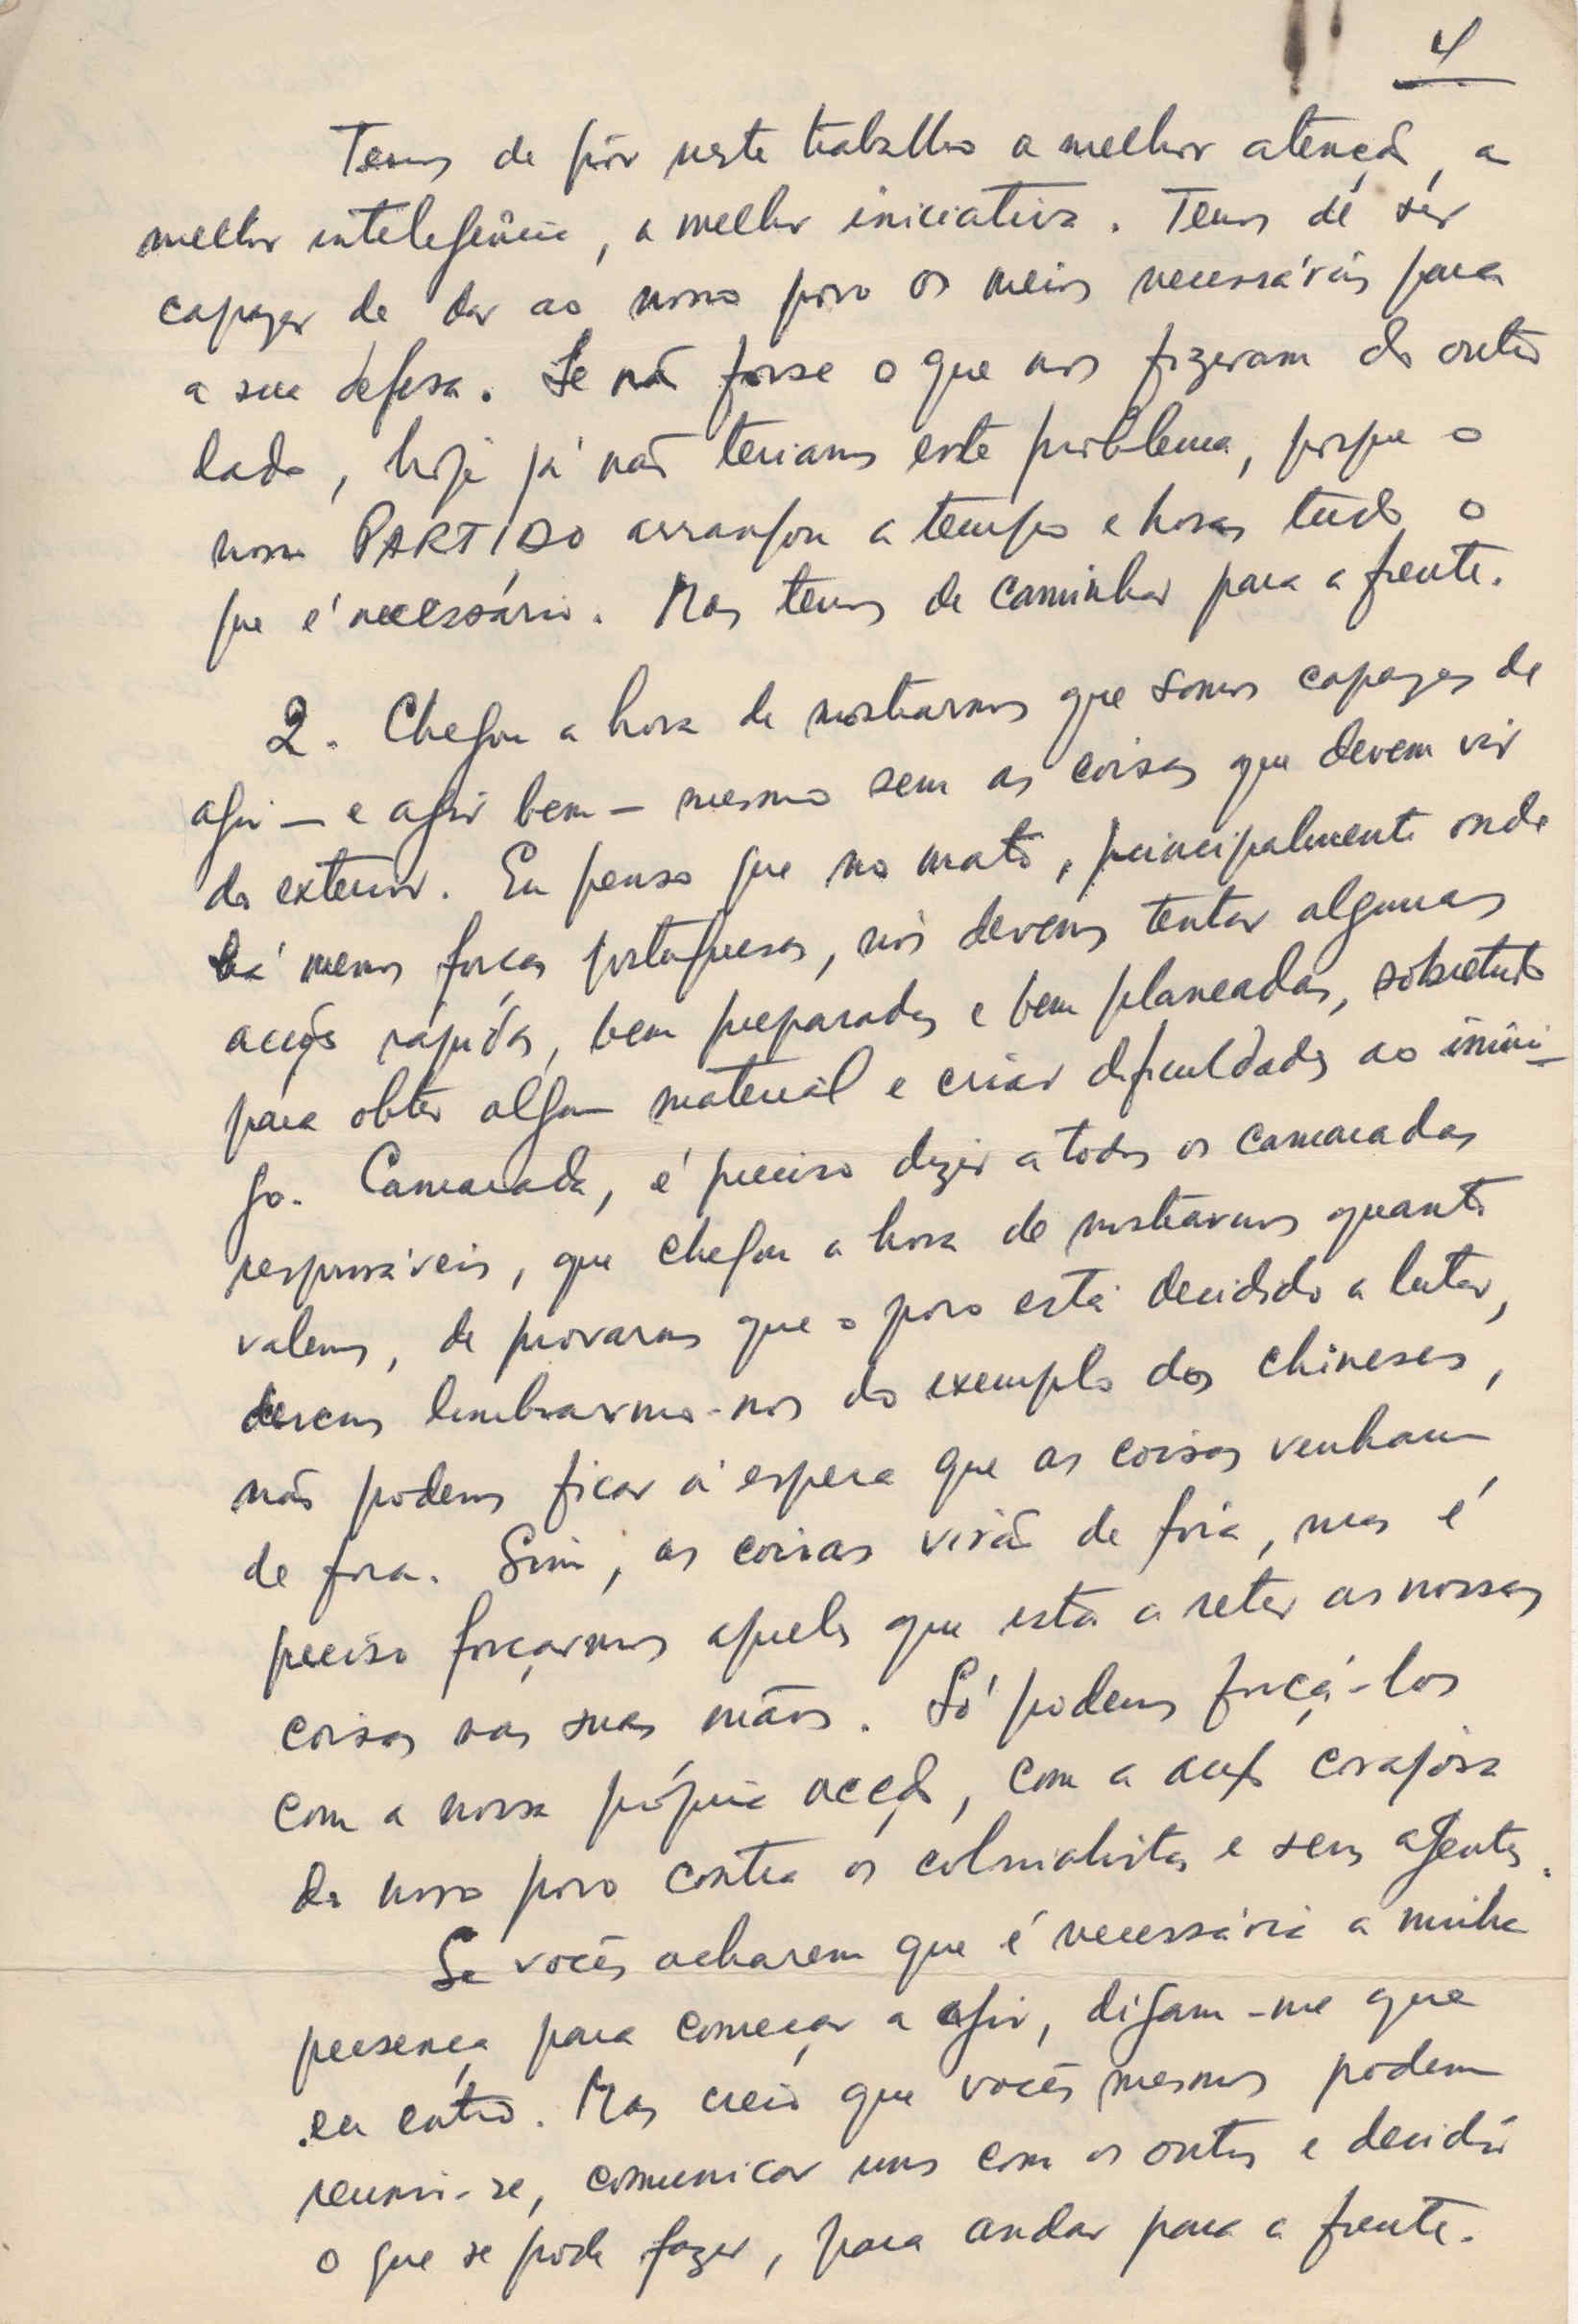 4
Temos de pôr neste trabalho a melhor atenção, a
melhor inteligência, a melhor iniciativa. Temos de ser
capazes de dar ao nosso povo os meios necessários para
a sua defesa. Se não fosse o que nos fizeram do outro
lado, hoje já não teriamos este problema, porque o
nosso PARTIDO arranjou a tempo e horas tudo o
que é necessário. Mas temos de caminhar para a frente.
2. Chegou a hora de mostrarmos que somos capazes de
agir — e agir bem — mesmo sem as coisas que devem vir
do exterior. Eu penso que no mato, principalmente onde
há menos forças portuguesas, nós devemos tentar algumas
acções rápidas, bem preparadas e bem planeadas, sobretudo
para obter algum material e criar dificuldades ao inimi-
go. Camarada, é preciso dizer a todos os camaradas
responsáveis, que chegou a hora de mostrarmos quanto
valemos, de provarmos que o povo está decidido a lutar,
devemos lembrarmo-nos do exemplo dos chineses,
não podemos ficar à espera que as coisas venham
de fora. Sim, as coisas virão de fora, mas é
preciso forçarmos aqueles que estão a reter as nossas
coisas nas suas mãos. Só podemos forçá-los
com a nossa própria acção, com a acção corajosa
do nosso povo contra os colonialistas e seus agentes.
Se vocês acharem que é necessária a minha
presença para começar a agir, digam-me que
eu entro. Mas creio que vocês mesmos podem
reunir-se, comunicar uns com os outros e decidir
o que se pode fazer, para andar para a frente.